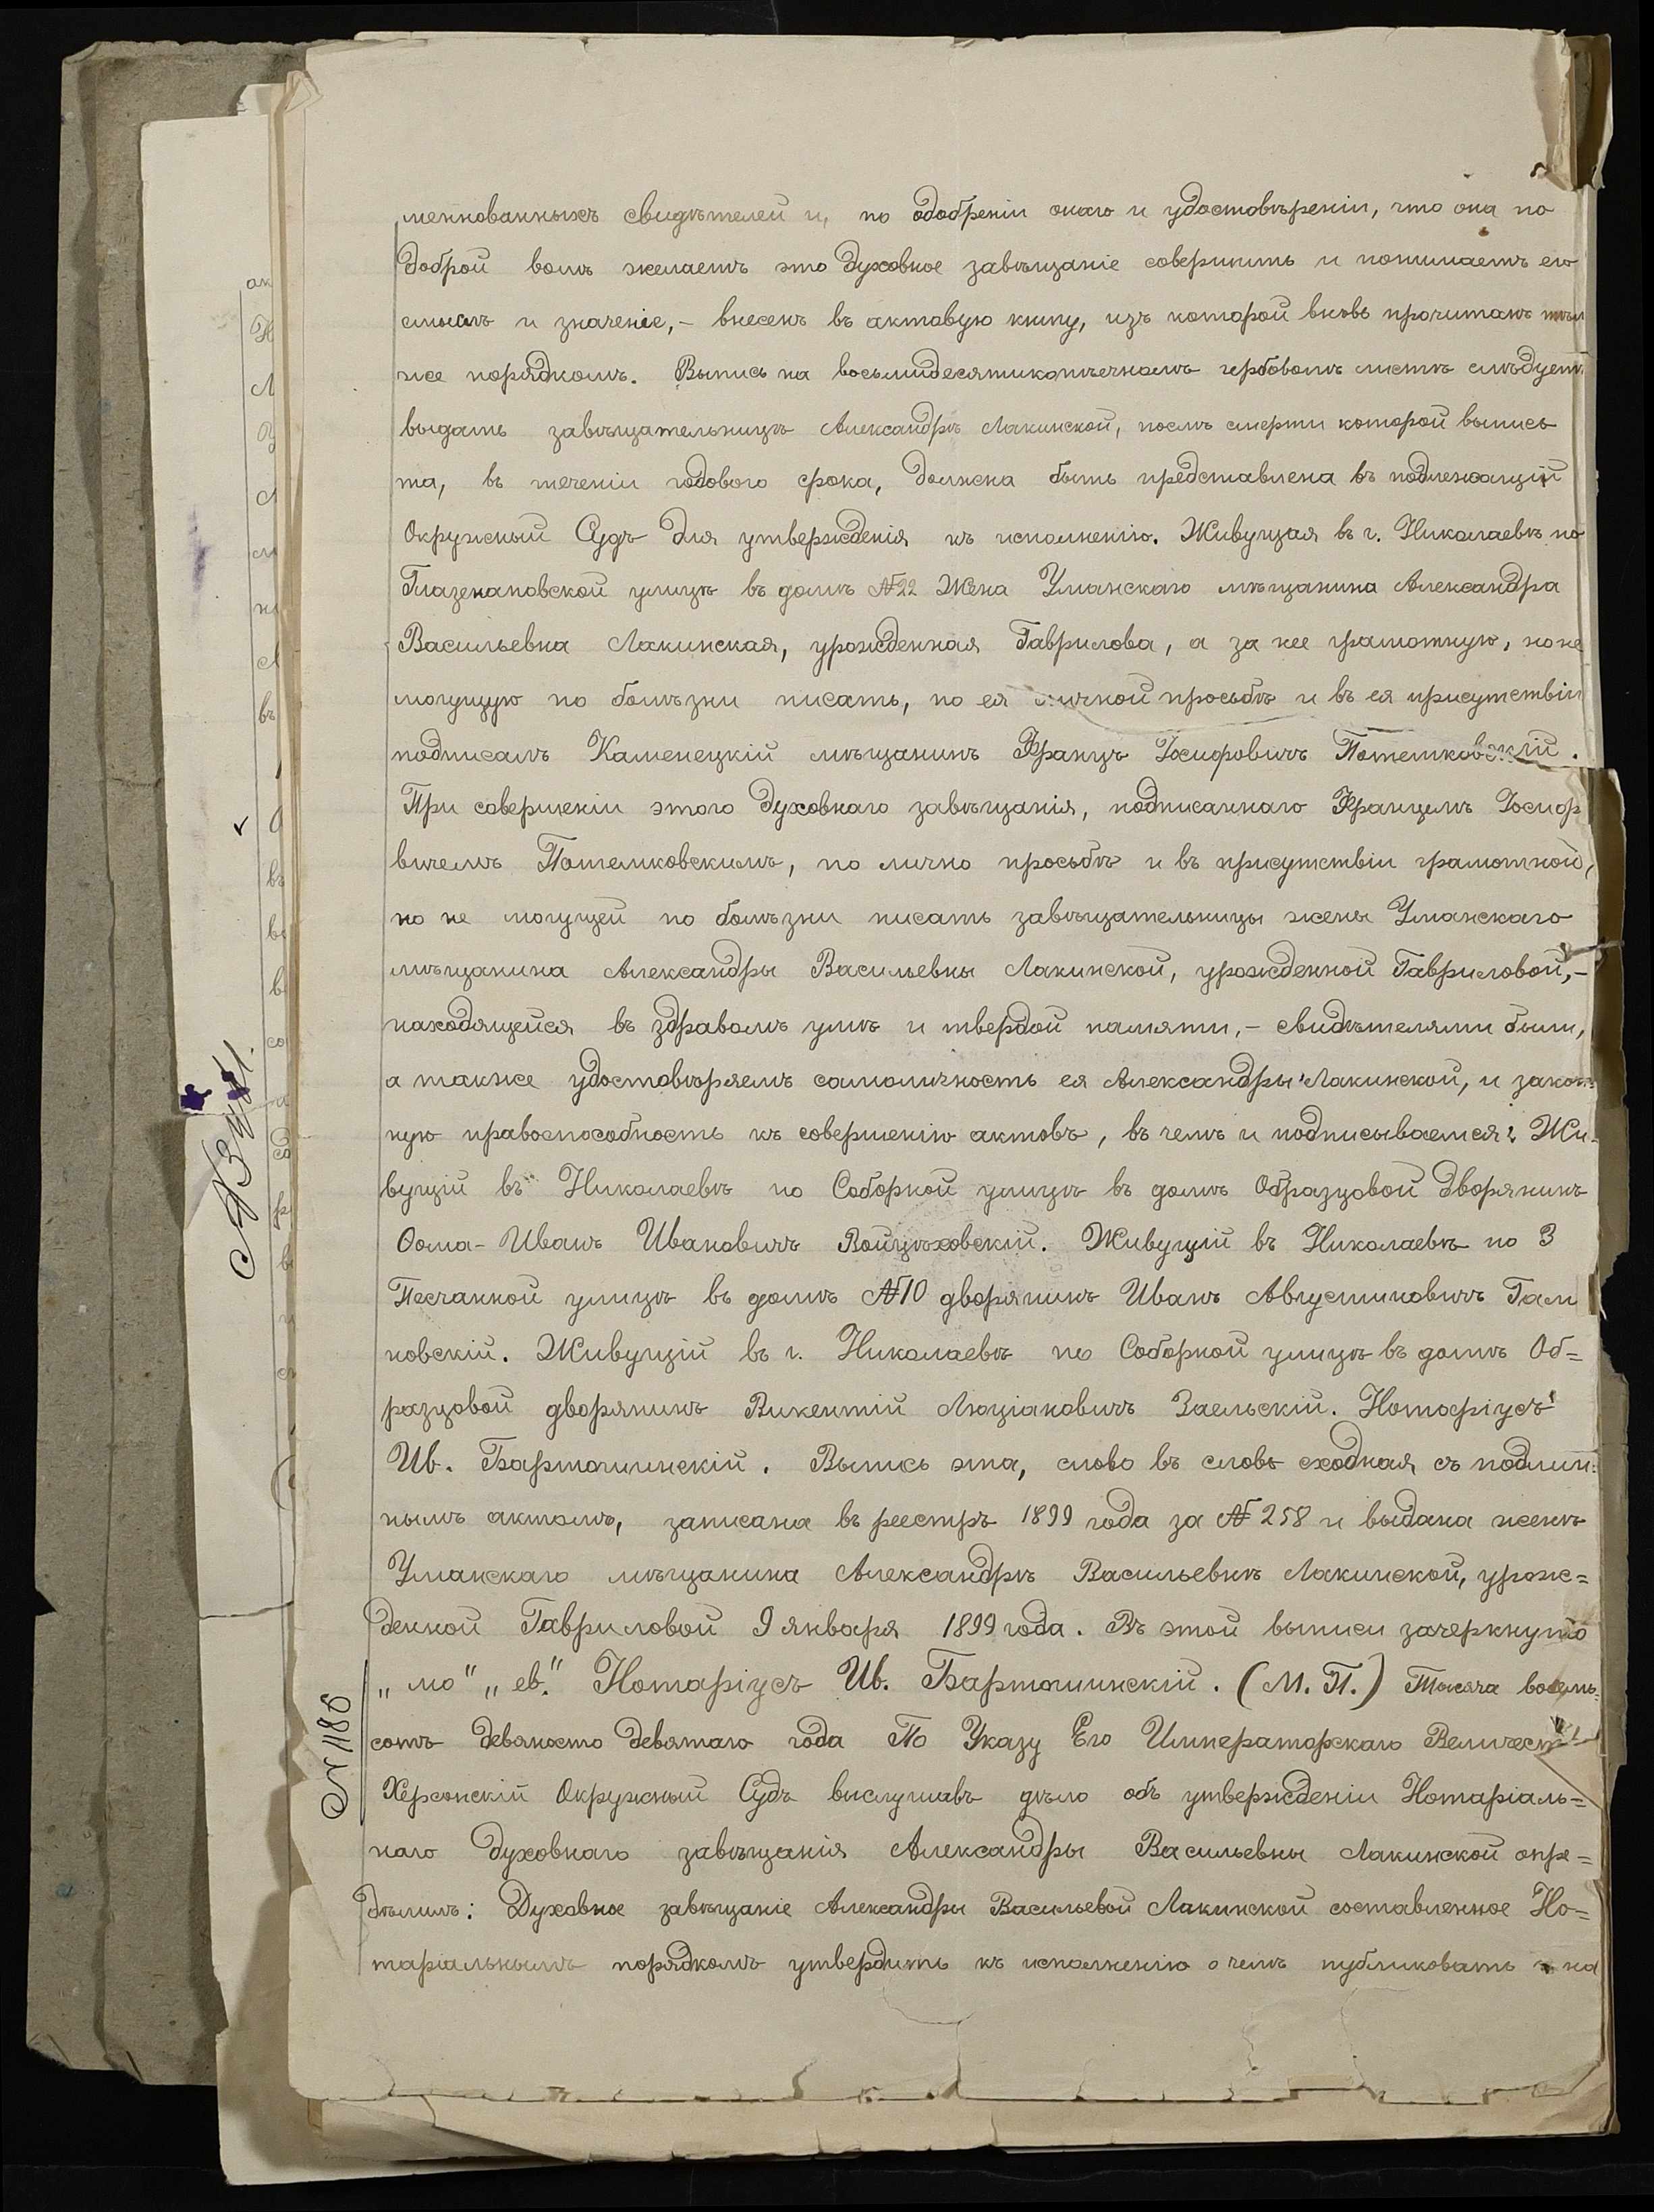 менкованныхъ свидѣтелей и, по одобреніи онаго и удостовѣреніи, что она по
доброй волѣ желаетъ это духовное завѣщаніе совершить и понимаетъ его
смыслъ и значеніе, - внесенъ въ актовую книгу, изъ которой вновь прочитанъ тѣм
же порядкомъ. Выпись на восьмидесятикопѣечномъ гербовомъ листѣ слѣдуетъ
выдать завѣщательницѣ Александрѣ Лакинской, послѣ смерти которой выпись
та, въ теченіи годового срока, должна быть представлена въ подлежащій
Окружный Судъ для утвержденія къ исполненію. Живущая въ г. Николаевѣ по
Глазенаповской улицѣ въ домѣ №22 Жена Уманскаго мѣщанина Александра
Васильевна Лакинская, урожденная Гаврилова, а за нее грамотную, но не
могущую по болѣзни писать, по ея личной просьбѣ и въ ея присутствіи
подписалъ Каменецкій мѣщанинъ Францъ Іосифовичъ Потемковскій.
При совершеніи этого духовнаго завѣщанія, подписаннаго Францемъ Іосиф
вичемъ Потемковскимъ, по лично просьбѣ и въ присутствіи грамотной,
но не могущей по болѣзни писать завѣщательницы жены Уманскаго
мѣщанина Александры Васильевны Лакинской, урожденной Гавриловой, -
находящейся въ здравомъ умѣ и твердой памяти, - свидѣтелями были,
а также удостовѣряемъ самоличность ея Александры Лакинской, и закон
ную правоспособность къ совершенію актовъ, въ чемъ и подписываемся: Жи-
вущій въ Николаевѣ по Соборной улицѣ въ домѣ Образцовой дворянинъ
Ѳома-Иванъ Ивановичъ Войцѣховскій. Живущій въ Николаевѣ по 3
Песчанной улицѣ въ домѣ №10 дворянинъ Иванъ Августиновичъ Гал
ковскій. Живущій въ г. Николаевѣ по Соборной улицѣ въ домѣ Об=
разцовой дворянинъ Викентій Люціановичъ Заельскій. Нотаріусъ
Ив. Бартошинскій. Выпись эта, слово въ слово сходная съ подлин=
нымъ актомъ, записана въ реестръ 1899 года за №258 и выдана женѣ
Уманскаго мѣщанина Александрѣ Васильевнѣ Лакинской, урож=
денной Гавриловой 9 января 1899 года. Въ этой выписи зачеркнуто
„мо" „ев." Нотаріусъ Ив. Бартошинскій. (М. П.) Тысяча восемь=
сотъ девяносто девятаго года По Указу Его Императорскаго Величест
Херсонскій Окружный Судъ выслушавъ дѣло объ утвержденіи Нотаріаль=
наго духовнаго завѣщанія Александры Васильевны Лакинской опре=
дѣлилъ: Духовное завѣщаніе Александры Васильевой Лакинской составленное Но=
таріальнымъ порядкомъ утвердить къ исполненію о чемъ публиковать на
№1186